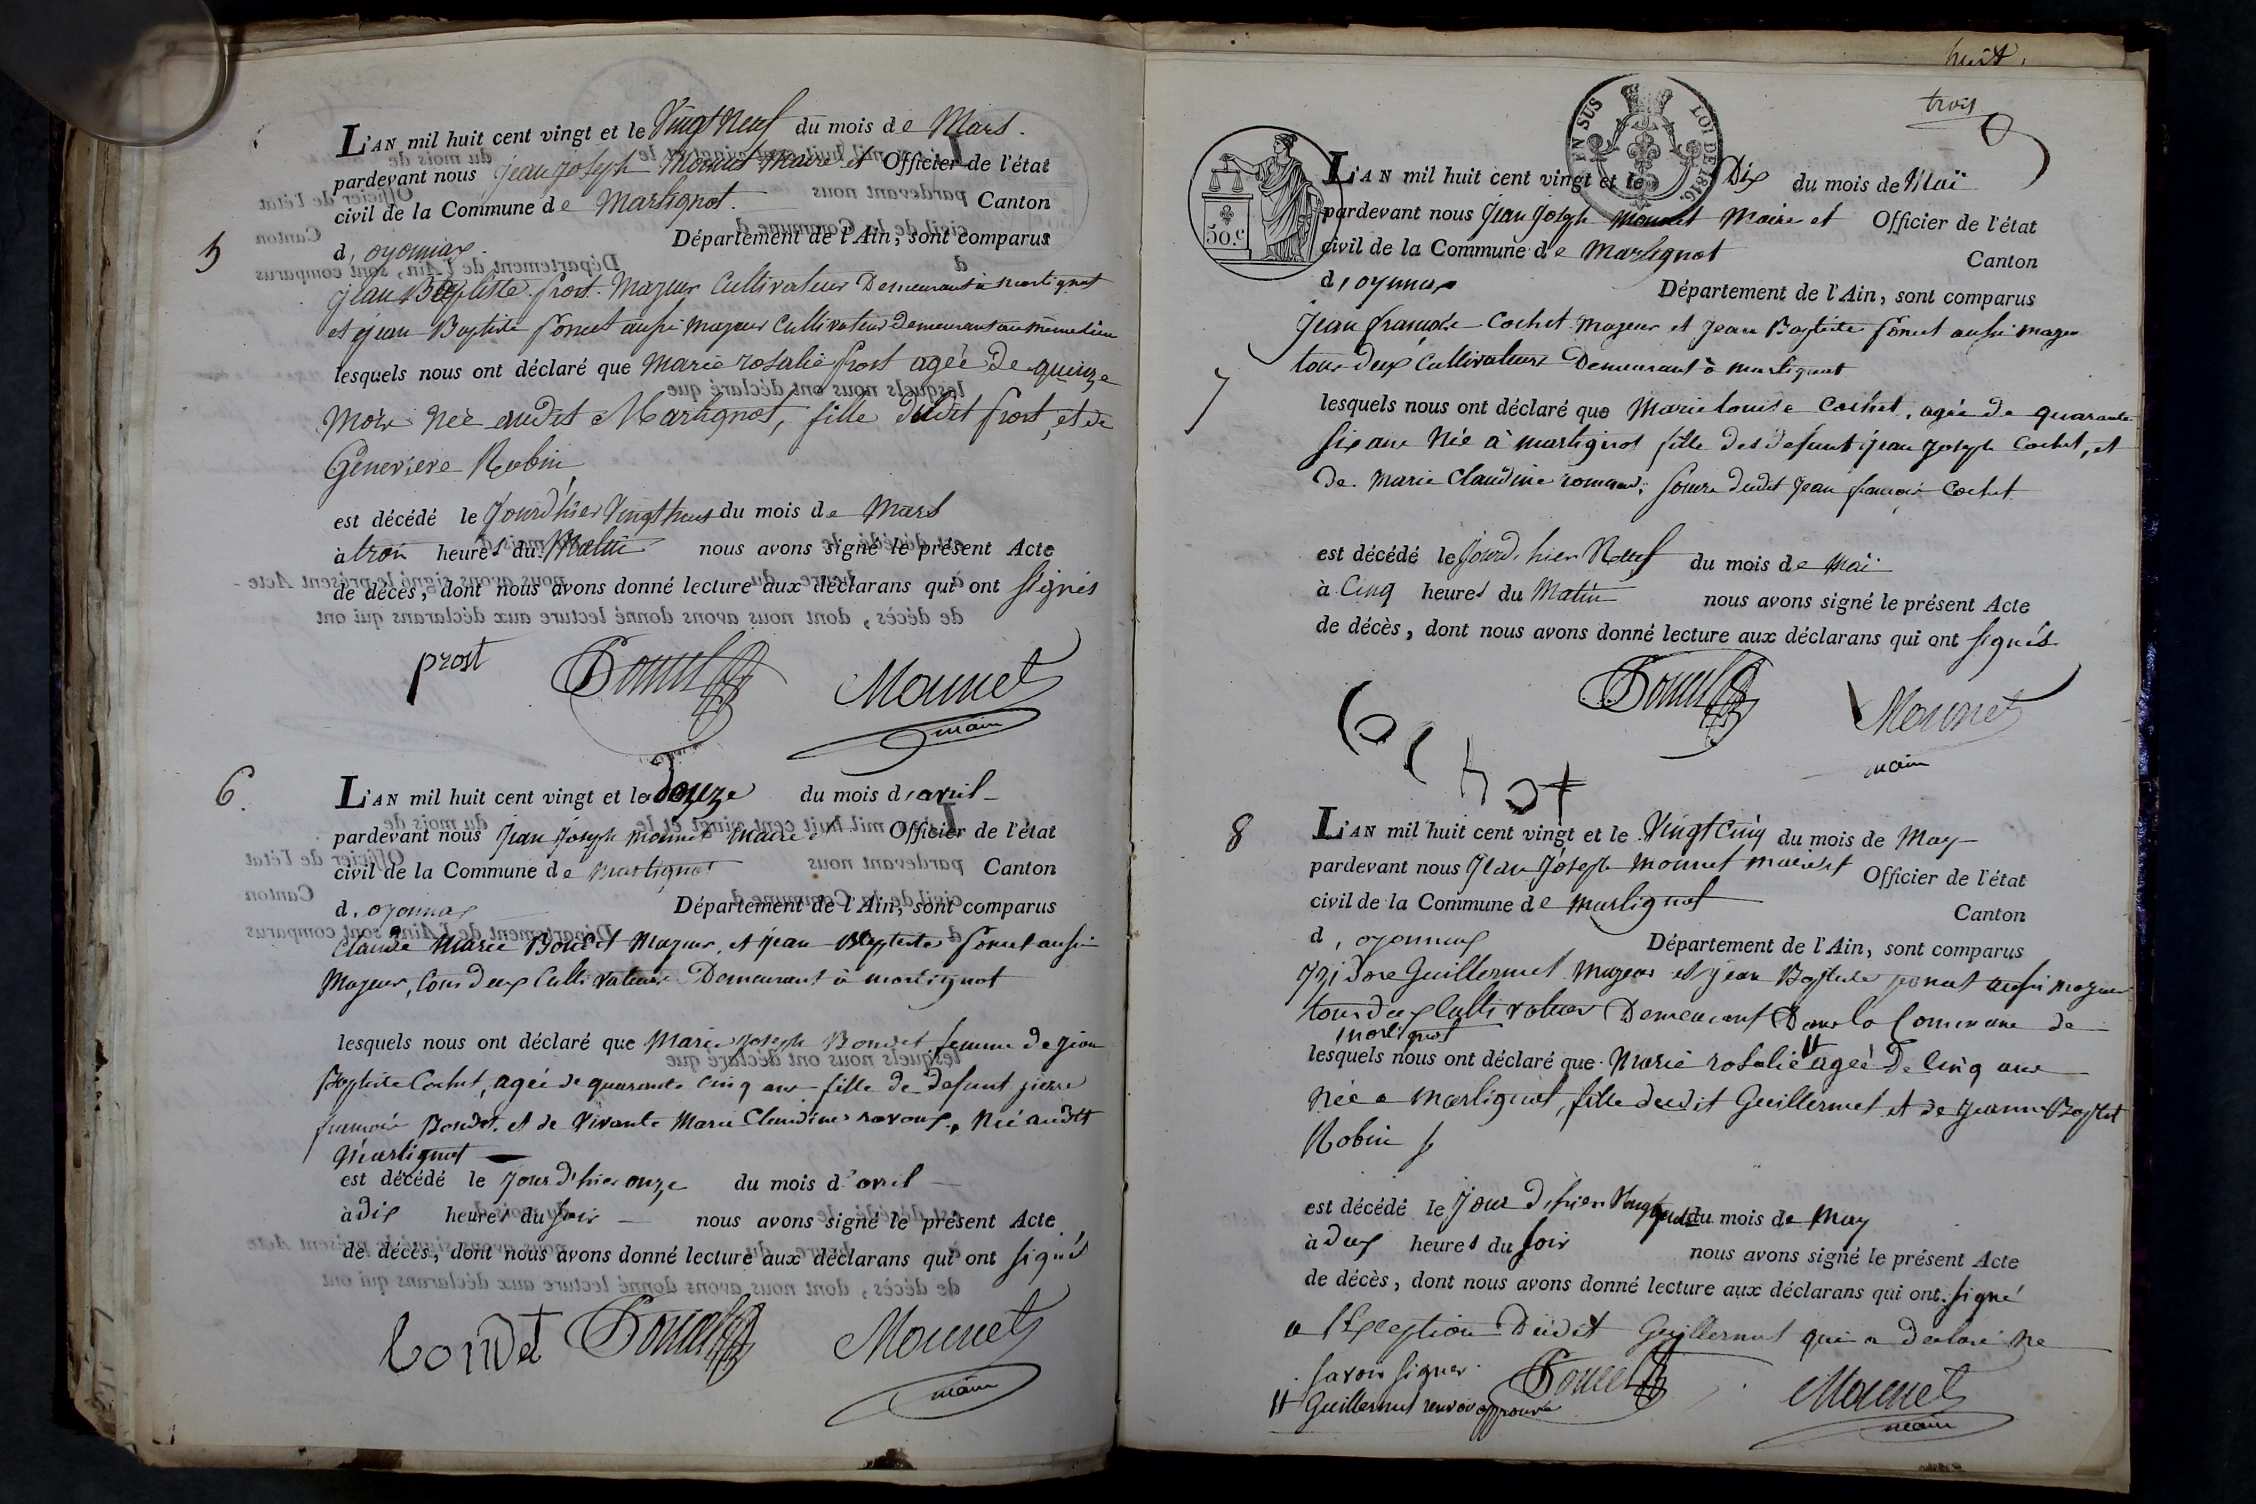 5
L'AN mil huit cent vingt et le Vingt Neuf du mois de Mars.
pardevant nous jean joseph Monnet Maire et Officier de l'état
civil de la Commune de Martignat. Canton
d, oyonnax. Département de l'Ain, sont comparus
jean Baptiste prost Majeur Cultivateur Demeurant à martignat
et jean Baptiste poncet aussi majeur Cultivateur demeurant au même lieu
lesquels nous ont déclaré que Marie rosalie prost agée de quinze
Mois Née audit Martignat, fille dudit prost, et de
Genevieve Robin
est décédé le jourd'hier Vingt huit du mois de Mars
à trois heures du Matin nous avons signé le présent Acte
de décès, dont nous avons donné lecture aux déclarans qui ont signés
prost Poncet Monnet
maire
6.
L'AN mil huit cent vingt et le douze du mois d'avril
pardevant nous Jean Joseph monnet maire et Officier de l'état
civil de la Commune de martignat Canton
d, oyonnax Département de l'Ain, sont comparus
Claude Marie Bondet Majeur, et jean Baptiste poncet aussi
Majeur, tous deux Cultivateurs Demeurant à martignat
lesquels nous ont déclaré que Marie Joseph Bondet femme de jean
Baptiste Cochet, agée de quarante cinq ans fille de défunt pierre
françois Bondet, et de Vivante Marie Claudine, Née audit
Martignat
est décédé le jour d'hier onze du mois d'avril
à dix heures du soir nous avons signé le présent Acte
de décès, dont nous avons donné lecture aux déclarans qui ont signés
bondet Poncet Monnet
maire
huit.
trois
EN SUS LOI DE 1816.
50.c
7
L'AN mil huit cent vingt et le Dix du mois de Maï
pardevant nous Jean Joseph monnet Maire et Officier de l'état
civil de la Commune de Martignat Canton
d, oyonnax Département de l'Ain, sont comparus
Jean françois Cochet Majeur et Jean Baptiste poncet aussi majeur
tous deux Cultivateurs Demeurant à martignat
lesquels nous ont déclaré que Marie louise Cochet, agée de quarante
six ans Née à martignat fille des défunt jean Joseph Cochet, et
de Marie Claudine, soeur dudit Jean françois Cochet
est décédé le jourd, hier Neuf du mois de maï
à Cinq heures du Matin nous avons signé le présent Acte
de décès, dont nous avons donné lecture aux déclarans qui ont signés
Cochet Poncet Monnet
maire
8
L'AN mil huit cent vingt et le Vingt Cinq du mois de May
pardevant nous Jean Joseph monnet maire et Officier de l'état
civil de la Commune de martignat Canton
d, oyonnax Département de l'Ain, sont comparus
Guillermet Majeur et jean Baptiste poncet aussi majeur
tous deux Cultivateurs Demeurant Dans la Commune de
martignat
lesquels nous ont déclaré que Marie rosalie agée De Cinq ans
Née a martignat, fille dudit Guillermet et de Jeanne Baptist
Robin
est décédé le jour d'hier du mois de May
à deux heures du soir nous avons signé le présent Acte
de décès, dont nous avons donné lecture aux déclarans qui ont signé
a l'Exception Dudit Guillermet qui a declaré Ne
savoir signer. Poncet Monnet
Guillermet renvoi approuvé maire